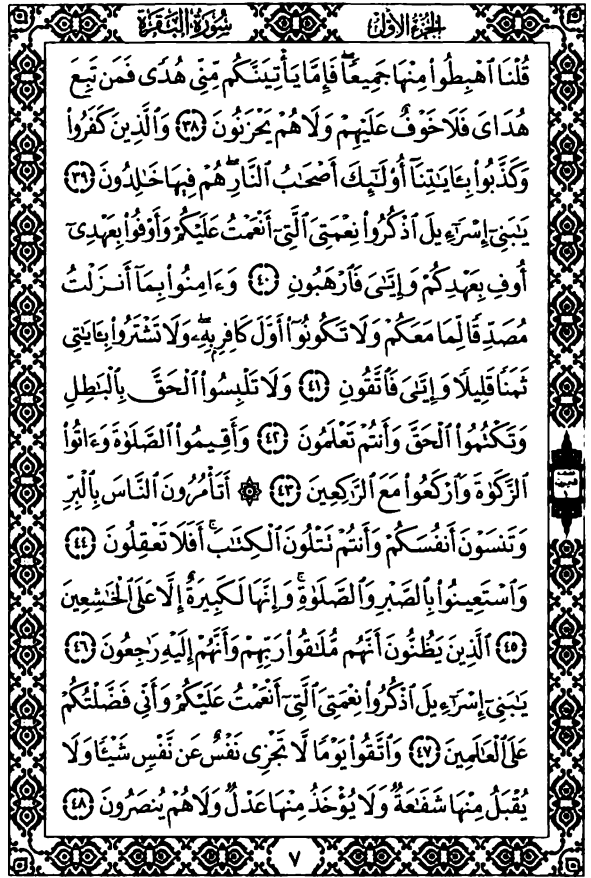 سُورَةُ البَقَرَةِ
الجُزْءُ الأَوَّلُ
قُلْنَا ٱهْبِطُوا۟ مِنْهَا جَمِيعًا ۖ فَإِمَّا يَأْتِيَنَّكُم مِّنِّى هُدًى فَمَن تَبِعَ
هُدَاىَ فَلَا خَوْفٌ عَلَيْهِمْ وَلَا هُمْ يَحْزَنُونَ ٣٨ وَٱلَّذِينَ كَفَرُوا۟
وَكَذَّبُوا۟ بِـَٔايَـٰتِنَآ أُو۟لَـٰٓئِكَ أَصْحَـٰبُ ٱلنَّارِ ۖ هُمْ فِيهَا خَـٰلِدُونَ ٣٩
يَـٰبَنِىٓ إِسْرَٰٓءِيلَ ٱذْكُرُوا۟ نِعْمَتِىَ ٱلَّتِىٓ أَنْعَمْتُ عَلَيْكُمْ وَأَوْفُوا۟ بِعَهْدِىٓ
أُوفِ بِعَهْدِكُمْ وَإِيَّـٰىَ فَٱرْهَبُونِ ٤٠ وَءَامِنُوا۟ بِمَآ أَنزَلْتُ
مُصَدِّقًا لِّمَا مَعَكُمْ وَلَا تَكُونُوٓا۟ أَوَّلَ كَافِرٍۭ بِهِۦ ۖ وَلَا تَشْتَرُوا۟ بِـَٔايَـٰتِى
ثَمَنًا قَلِيلًا وَإِيَّـٰىَ فَٱتَّقُونِ ٤١ وَلَا تَلْبِسُوا۟ ٱلْحَقَّ بِٱلْبَـٰطِلِ
وَتَكْتُمُوا۟ ٱلْحَقَّ وَأَنتُمْ تَعْلَمُونَ ٤٢ وَأَقِيمُوا۟ ٱلصَّلَوٰةَ وَءَاتُوا۟
ٱلزَّكَوٰةَ وَٱرْكَعُوا۟ مَعَ ٱلرَّٰكِعِينَ ٤٣ ۞ أَتَأْمُرُونَ ٱلنَّاسَ بِٱلْبِرِّ
وَتَنسَوْنَ أَنفُسَكُمْ وَأَنتُمْ تَتْلُونَ ٱلْكِتَـٰبَ ۚ أَفَلَا تَعْقِلُونَ ٤٤
وَٱسْتَعِينُوا۟ بِٱلصَّبْرِ وَٱلصَّلَوٰةِ ۚ وَإِنَّهَا لَكَبِيرَةٌ إِلَّا عَلَى ٱلْخَـٰشِعِينَ
٤٥ ٱلَّذِينَ يَظُنُّونَ أَنَّهُم مُّلَـٰقُوا۟ رَبِّهِمْ وَأَنَّهُمْ إِلَيْهِ رَٰجِعُونَ ٤٦
يَـٰبَنِىٓ إِسْرَٰٓءِيلَ ٱذْكُرُوا۟ نِعْمَتِىَ ٱلَّتِىٓ أَنْعَمْتُ عَلَيْكُمْ وَأَنِّى فَضَّلْتُكُمْ
عَلَى ٱلْعَـٰلَمِينَ ٤٧ وَٱتَّقُوا۟ يَوْمًا لَّا تَجْزِى نَفْسٌ عَن نَّفْسٍ شَيْـًٔا وَلَا
يُقْبَلُ مِنْهَا شَفَـٰعَةٌ وَلَا يُؤْخَذُ مِنْهَا عَدْلٌ وَلَا هُمْ يُنصَرُونَ ٤٨
٧